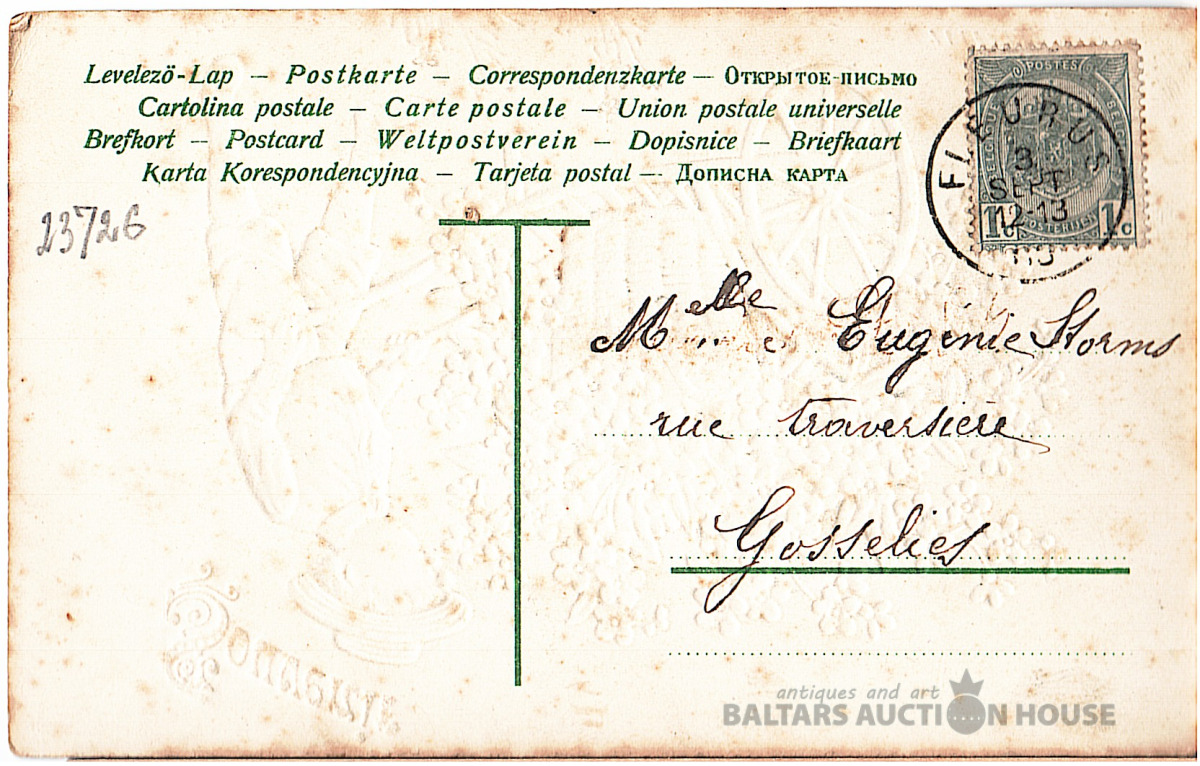 Levelezö-Lap – Postkarte – Correspondenzkarte – Открытое-письмо
Cartolina postale – Carte postale – Union postale universelle
Brefkort – Postcard – Weltpostverein – Dopisnice – Briefkaart
Karta Korespondencyjna – Tarjeta postal – Дописна карта
POSTES
FLEURUS
3
SEPT
12-13
1c 1c
POSTERIJEN
23726
Melle Eugenie Storms
rue traversiere
Gosselies
antiques and art
BALTARS AUCTION HOUSE